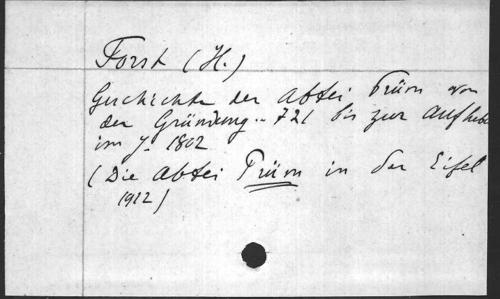 Forst (H.)
Geschichte der Abtei Prüm von
der Gründung .. 721 bis zur Aufhebu
im J. 1802
(Die Abtei Prüm in der Eifel
1912)